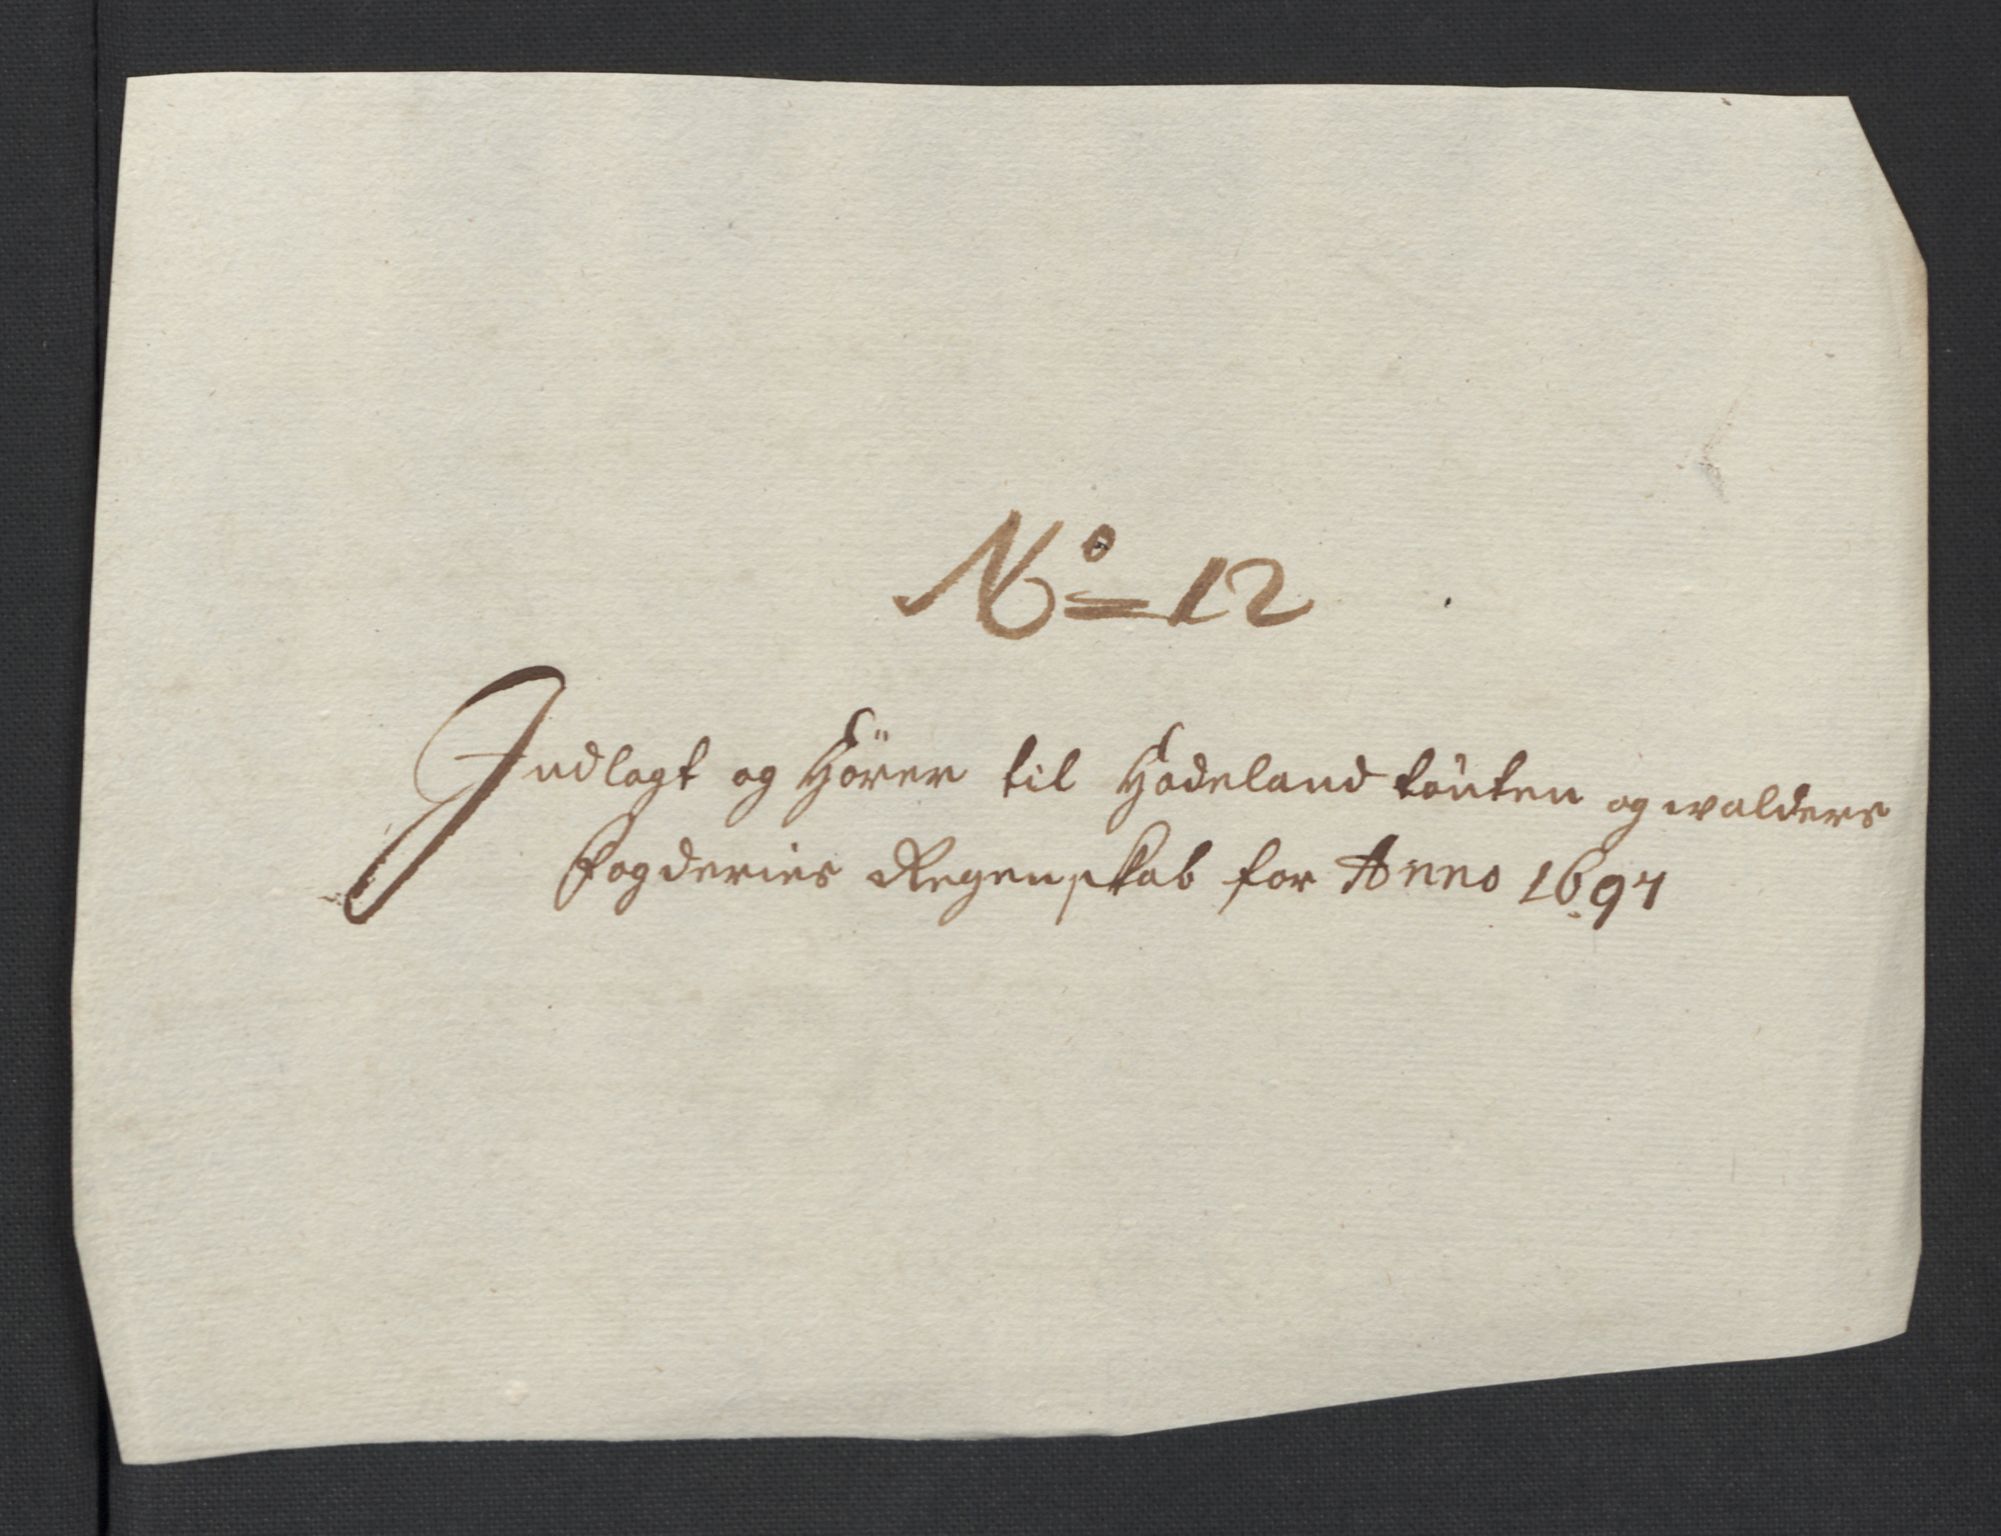 No= 12
Indlagt og Hörer til Hadeland tönten og walders
fogderies Regenskab for Anno 1697